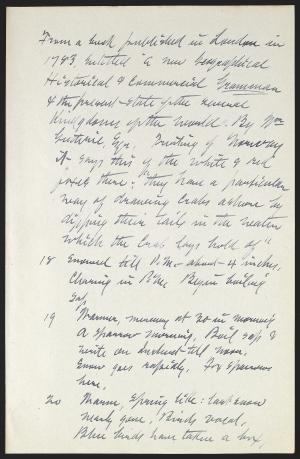 From a book published in London in
1783, entitled "a new Geographical
Historical & Commercial Grammar
& the present state of the several
Kingdoms of the world. By Wm
Guthrie, Esqr. Treating of Norway
it says this of the white & red
foxes there: "they have a particular
way of drawing crabs ashore by
dipping their tails in the water
which the crab lays hold of"
18 Snowed till P.M. about 4 inches.
Clearing in P.M. Begin boiling
sap.
19 Warmer, mercury at 20 in morning
A sparrow morning, Boil sap &
write on till noon.
Snow goes rapidly. Fox sparrows
here.
20 Warm, Spring like: last snow
nearly gone, Birds vocal,
Blue birds have taken a box,